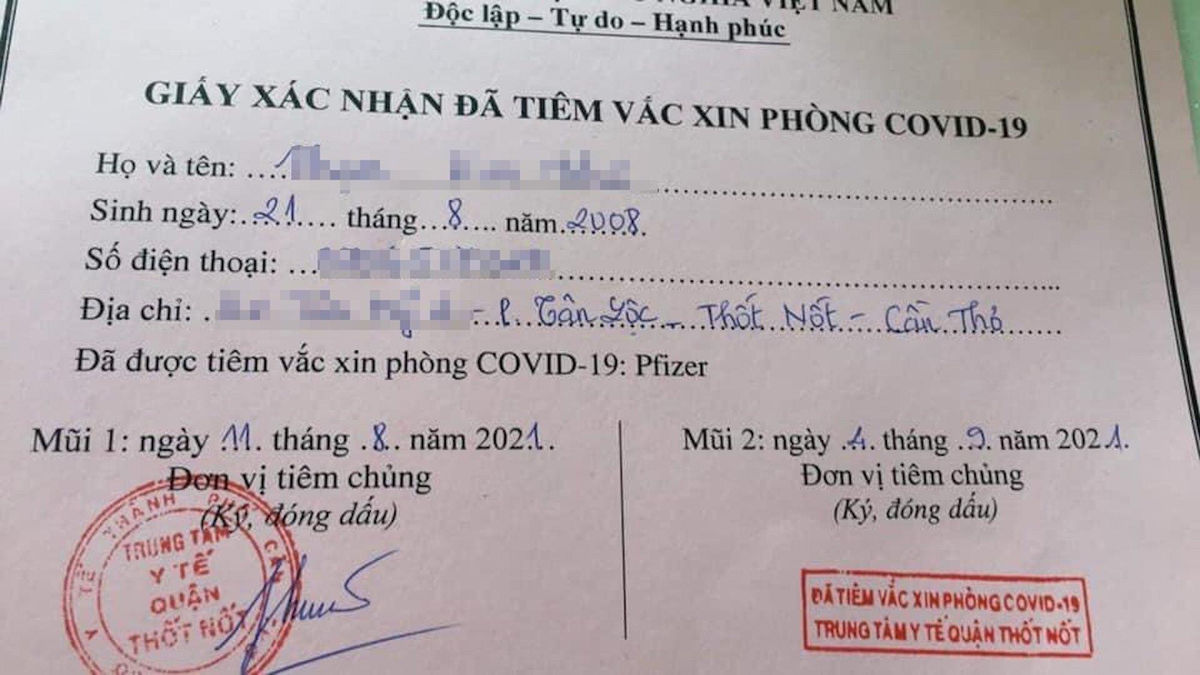 NGHĨA VIỆT NAM
Độc lập – Tự do – Hạnh phúc
GIẤY XÁC NHẬN ĐÃ TIÊM VẮC XIN PHÒNG COVID-19
Họ và tên:
Sinh ngày: 21 tháng 8 năm 2008.
Số điện thoại:
Địa chỉ: - P. Tân Lộc - Thốt Nốt - Cần Thơ
Đã được tiêm vắc xin phòng COVID-19: Pfizer
Mũi 1: ngày 11. tháng .8.. năm 2021. Mũi 2: ngày .4. tháng .9. năm 2021.
Đơn vị tiêm chủng Đơn vị tiêm chủng
(Ký, đóng dấu) (Ký, đóng dấu)
Y TẾ THÀNH PHỐ CẦN
TRUNG TÂM
Y TẾ
QUẬN
THỐT NỐT
ĐÃ TIÊM VẮC XIN PHÒNG COVID-19
TRUNG TÂM Y TẾ QUẬN THỐT NỐT